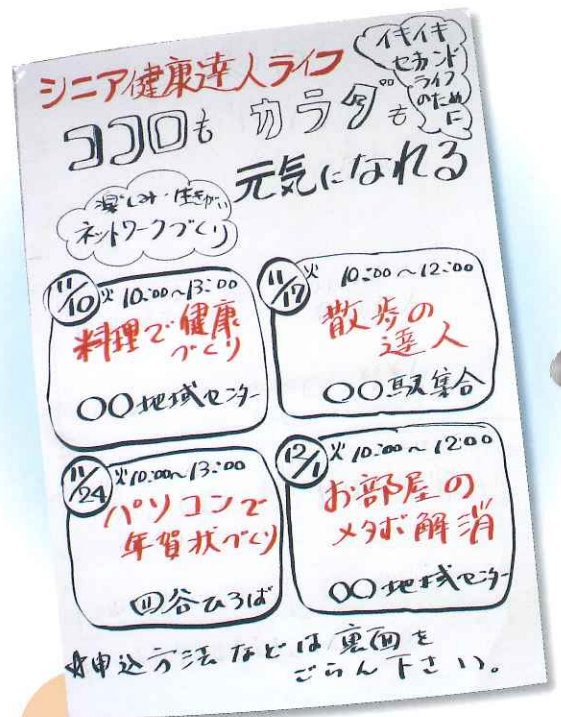 シニア健康達人ライフ
イキイキ
セカンド
ライフ
のため
に
ココロも カラダも
元気になれる
楽しみ・生きがい
ネットワークづくり
11/10 火 10:00～13:00
料理で健康
づくり
〇〇地域センター
11/17 火 10:00～12:00
散歩の
達人
〇〇駅集合
11/24 火 10:00～13:00
パソコンで
年賀状づくり
四谷ひろば
12/1 火 10:00～12:00
お部屋の
メタボ解消
〇〇地域センター
☆申込方法などは裏面を
ごらん下さい。